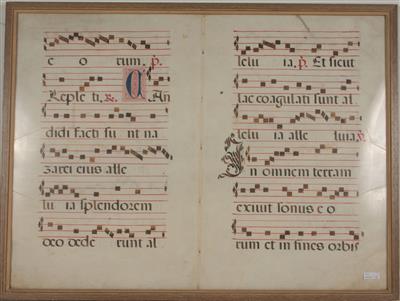 e o rum. p.
Repleti. R. CAn
didi facti su nt na
zarei eius alle
lu ia splendorem
deo dede runt al
lelu ia. p. Et sicut
lac coagulati sunt al
lelu ia alle luia. V.
In omnem terram
exiuit sonus e o
rum et in fines orbis